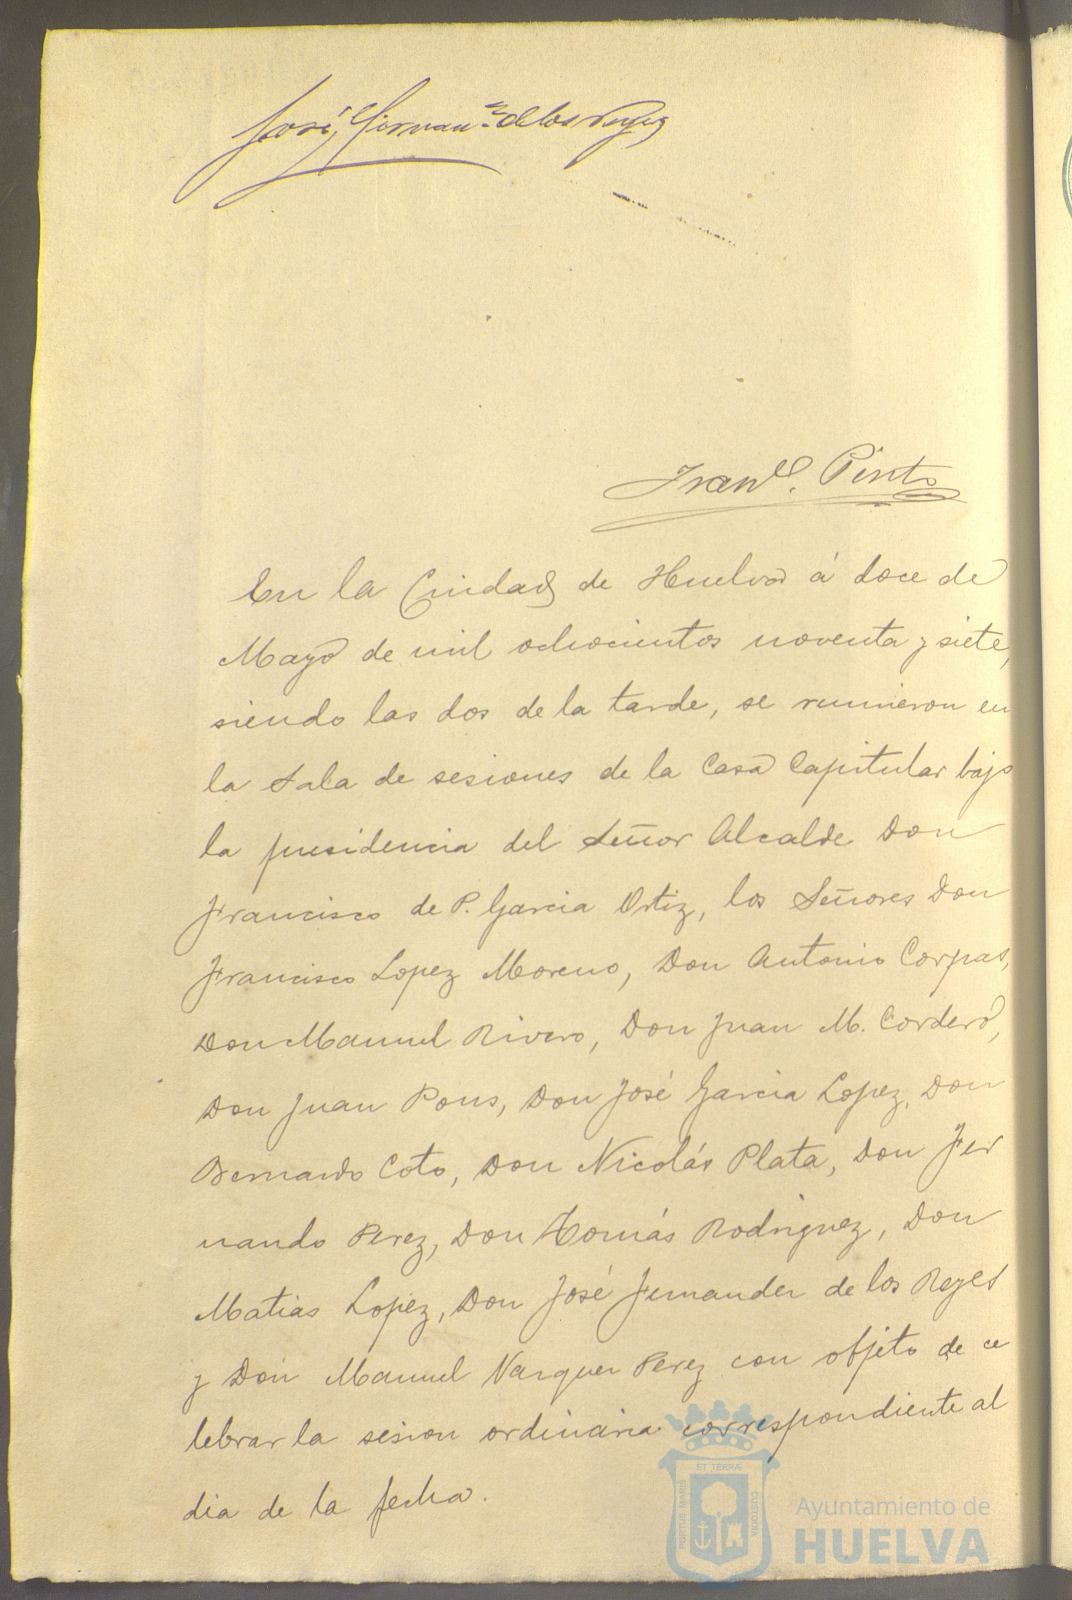 José Fernan.z de los Reyes
Fran.co Pinto
En la Ciudad de Huelva á doce de
Mayo de mil ochocientos noventa y siete,
siendo las dos de la tarde, se reunieron en
la Sala de sesiones de la Casa Capitular bajo
la presidencia del Señor Alcalde Don
Francisco de P. Garcia Ortiz, los Señores Don
Francisco Lopez Moreno, Don Antonio Corpas,
Don Manuel Rivero, Don Juan M. Cordero,
Don Juan Pons, Don José Garcia Lopez, Don
Bernardo Coto, Don Nicolás Plata, Don Fer
nando Perez, Don Tomás Rodriguez, Don
Matias Lopez, Don José Fernandez de los Reyes
y Don Manuel Vazquez Perez con objeto de ce
lebrar la sesion ordinaria correspondiente al
dia de la fecha.
ET TERRÆ
PORTUS MARIS
CUSTODIA
Ayuntamiento de
HUELVA